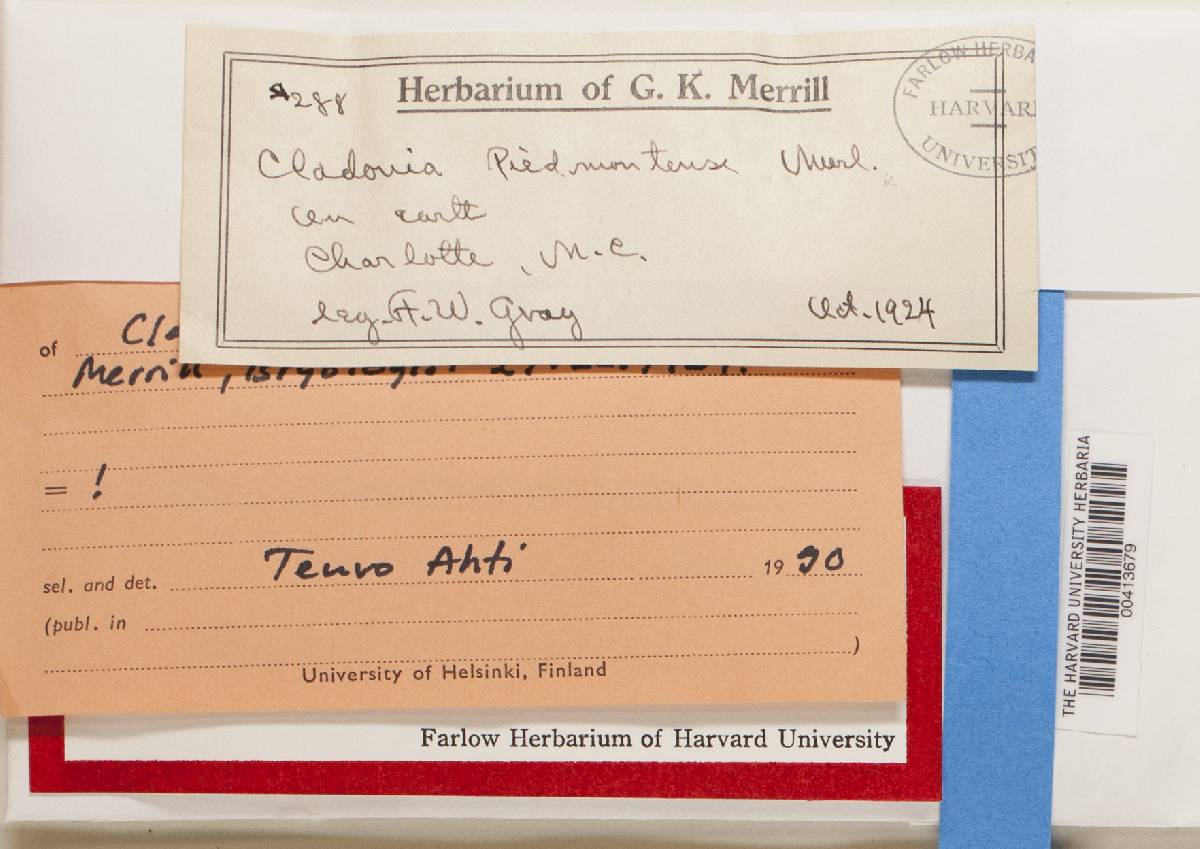 288
Herbarium of G. K. Merrill
FARLOW HERBA
HARVAR
UNIVERSIT
Cladonia Piedmontense Merl.
on earth
Charlotte, N.C.
leg. F. W. Gray Oct. 1924
of Cla
Merrill, Bryologist
= !
sel. and det. Teuvo Ahti 1990
(publ. in
)
University of Helsinki, Finland
Farlow Herbarium of Harvard University
THE HARVARD UNIVERSITY HERBARIA
00413679